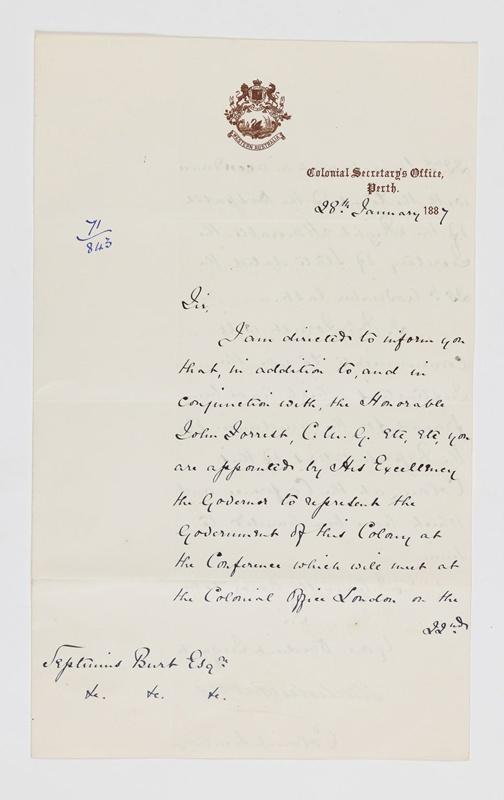 WESTERN AUSTRALIA
Colonial Secretary's Office,
Perth.
28th January 1887
71
843
Sir,
I am directed to inform you
that, in addition to, and in
conjunction with, the Honorable
John Forrest, C.M.G. Etc, Etc, you
are appointed by His Excellency
the Governor to represent the
Government of this Colony at
the Conference which will meet at
the Colonial Office London on the
22nd
Septimus Burt Esqre
&c. &c. &c.